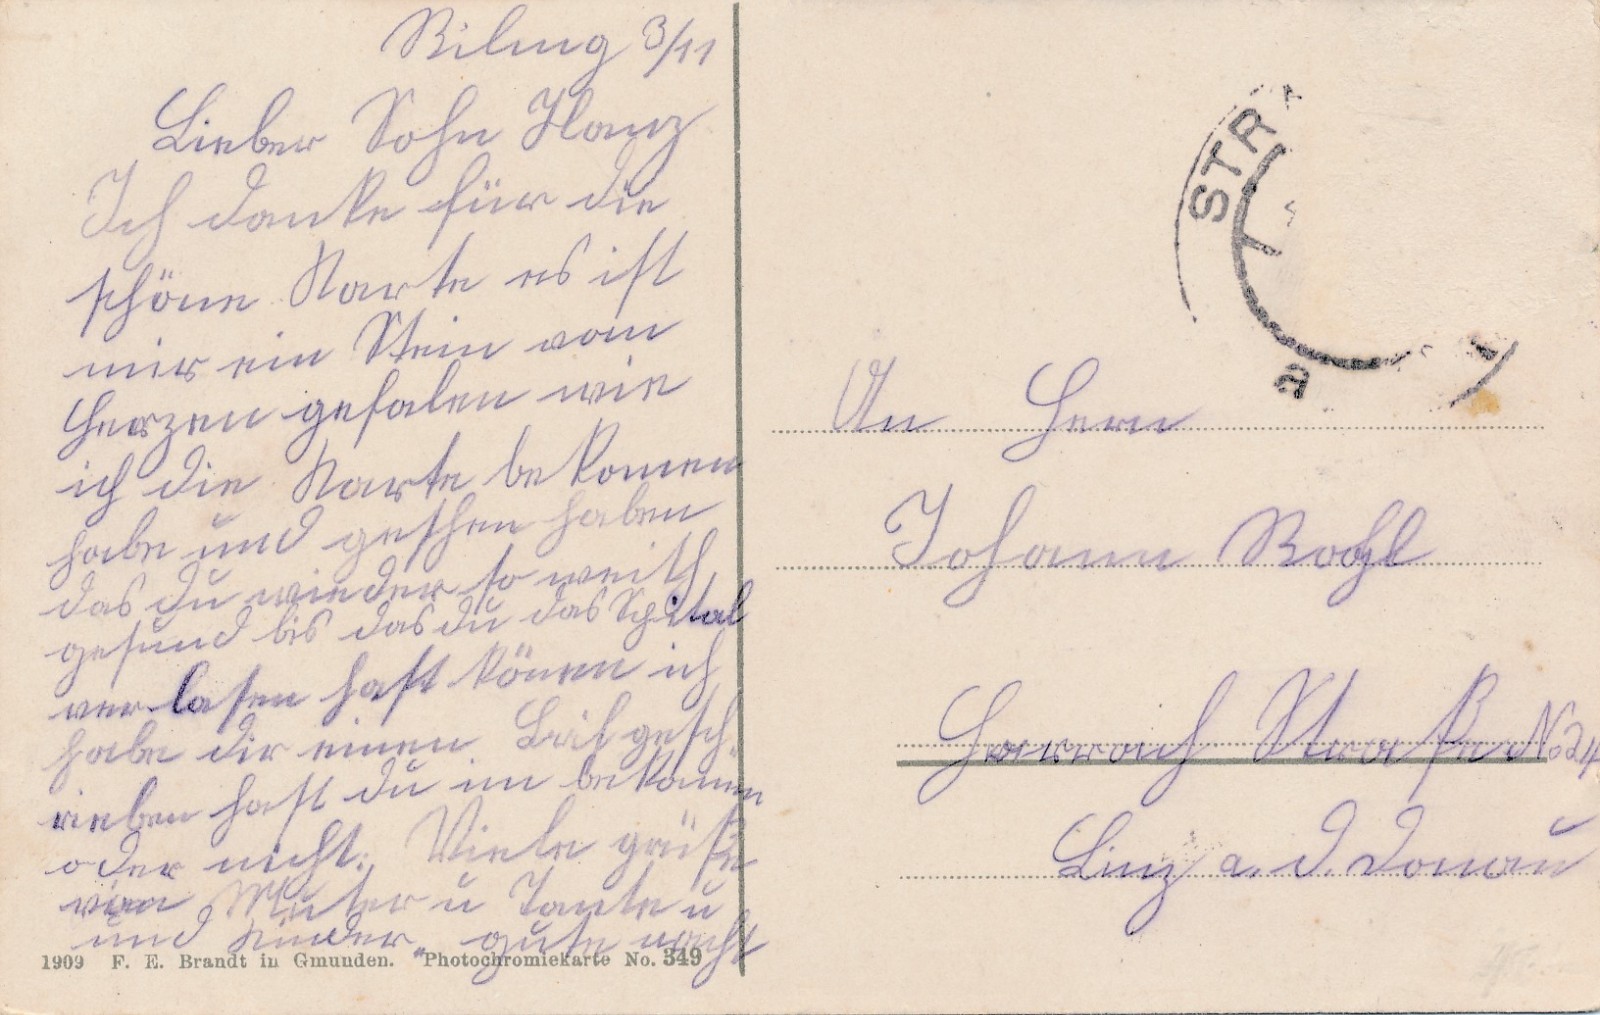 3/11
Lieber Sohn Hanz
Ich danke für die
schöne Karte es ist
mir ein Stein vom
Herzen gefalen wie
ich die Karte bekomen
habe und gesehen haben
das du wieder so weith
gesund bis das du das Spital
verlasen hast könen ich
habe dir einen Brif gesch-
rieben hast du im bekomen
oder nicht. Viele grüße
von Mutter u Tante u
und Kinder. gute nacht
1909 F. E. Brandt in Gmunden. Photochromiekarte No. 349
STR
a
An Hern
Johann
Harrach Straße No 24
Linz a. d. Donau